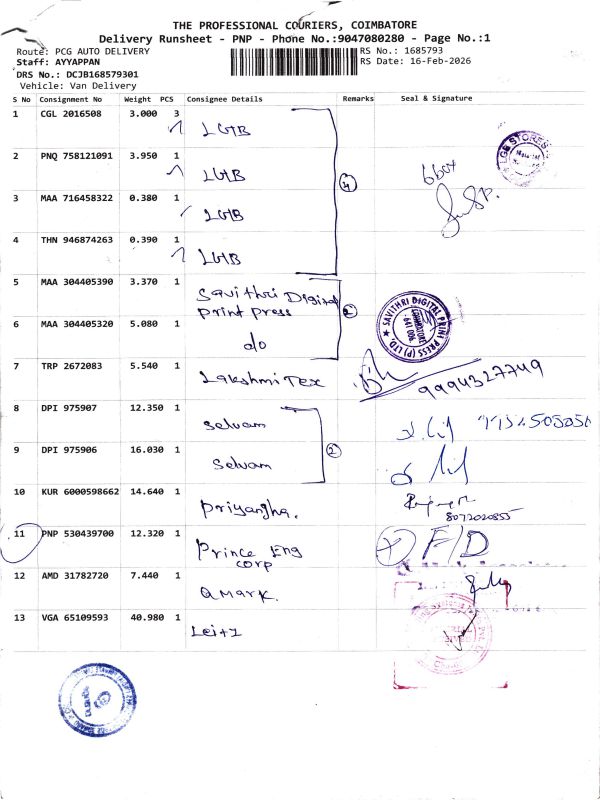 THE PROFESSIONAL COURIERS, COIMBATORE
Delivery Runsheet - PNP - Phone No.:9047080280 - Page No.:1
Route: PCG AUTO DELIVERY RS No.: 1685793
Staff: AYYAPPAN RS Date: 16-Feb-2026
DRS No.: DCJB168579301
Vehicle: Van Delivery
S No Consignment No Weight PCS Consignee Details Remarks Seal & Signature
1 CGL 2016508 3.000 3 LGB
2 PNQ 758121091 3.950 1 LGB
3 MAA 716458322 0.380 1 LGB
4 THN 946874263 0.390 1 LGB
4
LGE STORES
5 MAA 304405390 3.370 1 Savithri Digital
print press
6 MAA 304405320 5.080 1 do
2
SAVITHRI DIGITAL PRINT PRESS (P) LTD.
COIMBATORE
641 006
7 TRP 2672083 5.540 1 Lakshmi Tex 9994327749
8 DPI 975907 12.350 1 Selvam
9 DPI 975906 16.030 1 Selvam
2
10 KUR 6000598662 14.640 1 Priyangha.
8072020855
11 PNP 530439700 12.320 1 Prince Eng
corp
F/D
12 AMD 31782720 7.440 1 Q mark.
13 VGA 65109593 40.980 1